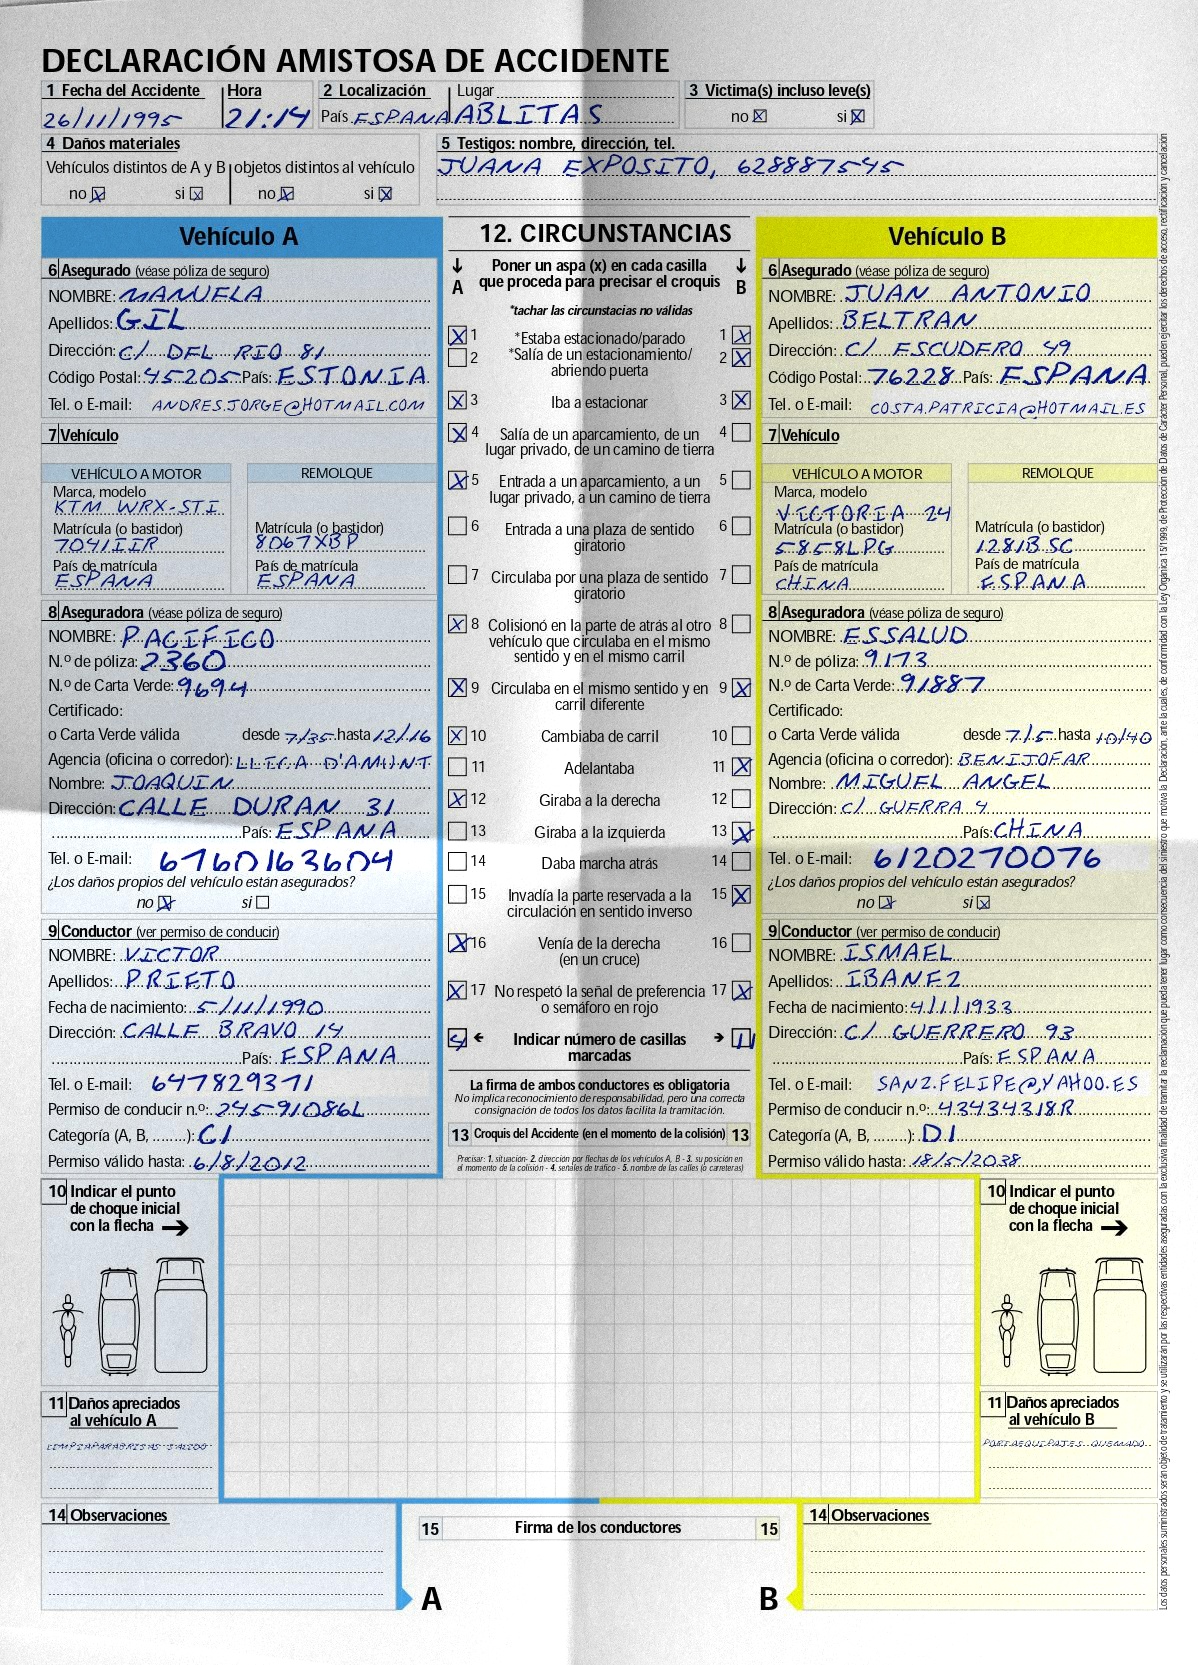 DECLARACIÓN AMISTOSA DE ACCIDENTE
1 Fecha del Accidente Hora 2 Localización Lugar 3 Victima(s) incluso leve(s)
26/11/1995 21:14 País ESPANA ABLITAS no si
4 Daños materiales
Vehículos distintos de A y B objetos distintos al vehículo
no si no si
5 Testigos: nombre, dirección, tel.
JUANA EXPOSITO, 628887545
Vehículo A
6 Asegurado (véase póliza de seguro)
NOMBRE: MANUELA
Apellidos: GIL
Dirección: C/ DEL RIO 81
Código Postal: 45205 País: ESTONIA
Tel. o E-mail: ANDRES.JORGE@HOTMAIL.COM
7 Vehículo
VEHÍCULO A MOTOR REMOLQUE
Marca, modelo
KTM WRX-STI
Matrícula (o bastidor) Matrícula (o bastidor)
7041IIR 8067XBP
País de matrícula País de matrícula
ESPANA ESPANA
8 Aseguradora (véase póliza de seguro)
NOMBRE: PACIFICO
N.º de póliza: 2360
N.º de Carta Verde: 9694
Certificado:
o Carta Verde válida desde 7/35 hasta 12/16
Agencia (oficina o corredor): LLICA D'AMUNT
Nombre: JOAQUIN
Dirección: CALLE DURAN 31
País: ESPANA
Tel. o E-mail: 6760163604
¿Los daños propios del vehículo están asegurados?
no si
9 Conductor (ver permiso de conducir)
NOMBRE: VICTOR
Apellidos: PRIETO
Fecha de nacimiento: 5/11/1990
Dirección: CALLE BRAVO 14
País: ESPANA
Tel. o E-mail: 647829371
Permiso de conducir n.º: 24591086L
Categoría (A, B, ........): C1
Permiso válido hasta: 6/8/2012
12. CIRCUNSTANCIAS
A Poner un aspa (x) en cada casilla que proceda para precisar el croquis B
*tachar las circunstacias no validas
1 *Estaba estacionado/parado 1
2 *Salía de un estacionamiento/ 2
abriendo puerta
3 Iba a estacionar 3
4 Salía de un aparcamiento, de un 4
lugar privado, de un camino de tierra
5 Entrada a un aparcamiento, a un 5
lugar privado, a un camino de tierra
6 Entrada a una plaza de sentido 6
giratorio
7 Circulaba por una plaza de sentido 7
giratorio
8 Colisionó en la parte de atrás al otro 8
vehículo que circulaba en el mismo
sentido y en el mismo carril
9 Circulaba en el mismo sentido y en 9
carril diferente
10 Cambiaba de carril 10
11 Adelantaba 11
12 Giraba a la derecha 12
13 Giraba a la izquierda 13
14 Daba marcha atrás 14
15 Invadía la parte reservada a la 15
circulación en sentido inverso
16 Venía de la derecha 16
(en un cruce)
17 No respetó la señal de preferencia 17
o semáforo en rojo
Indicar número de casillas 11
marcadas
La firma de ambos conductores es obligatoria
No implica reconocimiento de responsabilidad, pero una correcta
consignación de todos los datos facilita la tramitación.
13 Croquis del Accidente (en el momento de la colisión) 13
Precisar: 1. situación- 2. dirección por flechas de los vehículos A, B - 3. su posición en
el momento de la colisión - 4. señales de tráfico - 5. nombre de las calles (o carreteras)
Vehículo B
6 Asegurado (véase póliza de seguro)
NOMBRE: JUAN ANTONIO
Apellidos: BELTRAN
Dirección: C/ ESCUDERO 49
Código Postal: 76228 País: ESPANA
Tel. o E-mail: COSTA.PATRICIA@HOTMAIL.ES
7 Vehículo
VEHÍCULO A MOTOR REMOLQUE
Marca, modelo
VICTORIA 24
Matrícula (o bastidor) Matrícula (o bastidor)
5858LPG 1281BSC
País de matrícula País de matrícula
CHINA ESPANA
8 Aseguradora (véase póliza de seguro)
NOMBRE: ESSALUD
N.º de póliza: 9173
N.º de Carta Verde: 91887
Certificado:
o Carta Verde válida desde 7/5 hasta 10/40
Agencia (oficina o corredor): BENIJOFAR
Nombre: MIGUEL ANGEL
Dirección: C/ GUERRA 4
País: CHINA
Tel. o E-mail: 6120270076
¿Los daños propios del vehículo están asegurados?
no si
9 Conductor (ver permiso de conducir)
NOMBRE: ISMAEL
Apellidos: IBANEZ
Fecha de nacimiento: 4/1/1933
Dirección: C/ GUERRERO 93
País: ESPANA
Tel. o E-mail: SANZ.FELIPE@YAHOO.ES
Permiso de conducir n.º: 43434318R
Categoría (A, B, ........): D1
Permiso válido hasta: 18/5/2038
10 Indicar el punto
de choque inicial
con la flecha
11 Daños apreciados
al vehículo A
LIMPIAPARABRISAS SALIDO
10 Indicar el punto
de choque inicial
con la flecha
11 Daños apreciados
al vehículo B
PORTAEQUIPAJES QUEMADO
14 Observaciones
15 Firma de los conductores 15
A B
14 Observaciones